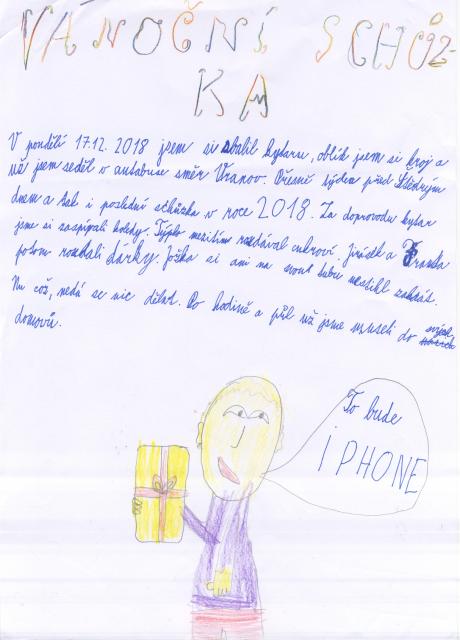 VÁNOČNÍ SCHŮZ-
KA
V pondělí 17.12. 2018 jsem si sbalil kytaru, oblík jsem si kroj a
už jsem seděl v autobuse směr Vranov. Přesně týden před Štědrým
dnem a tak i poslední schůzka v roce 2018. Za doprovodu kytar
jsme si zazpívali koledy. mezitím rozdával cukroví. Jirásek a Franta
potom rozdali dárky. Jožka si ani na svou tubu nestihl zahrát.
Nu což, nedá se nic dělat. Po hodině a půl už jsme museli do svých
domovů.
To bude
i PHONE